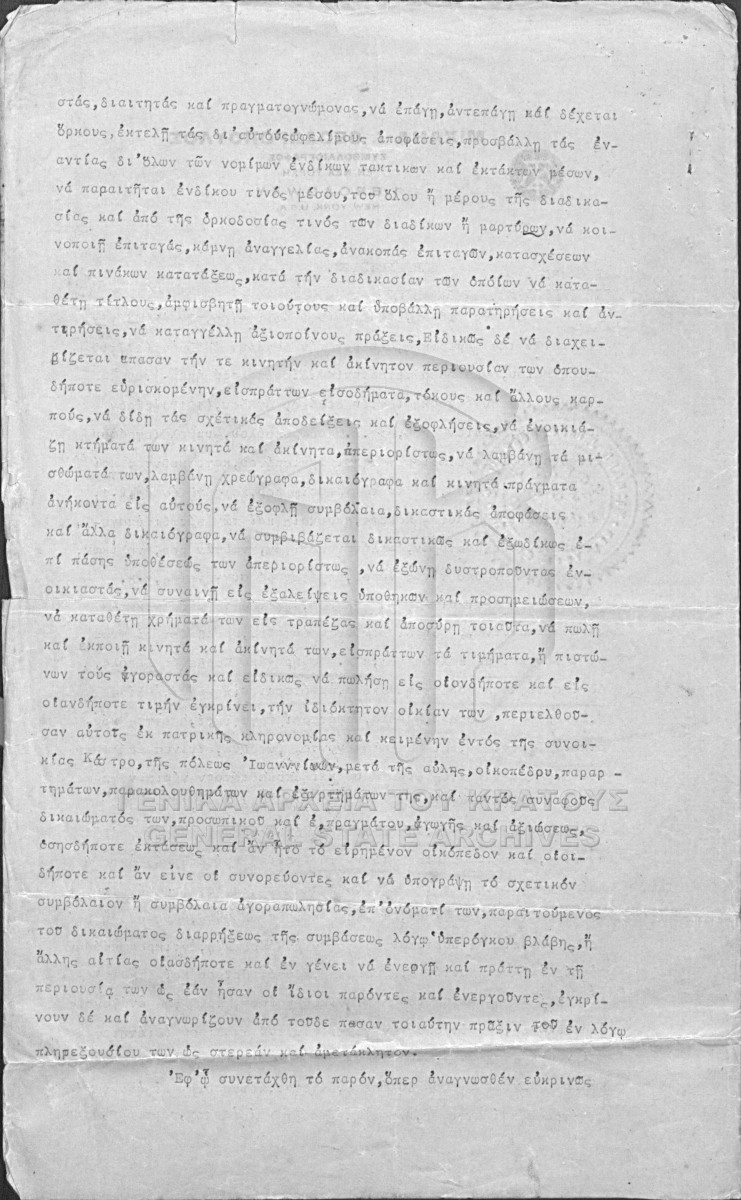 στάς,διαιτητάς καί πραγματογνώμονας,νά ἐπάγῃ,ἀντεπάγῃ κάί δέχεται
ὅρκους,ἐκτελῇ τάς δι'αὐτούςὠφελίμους ἀποφάσεις,προσβάλλῃ τάς ἐν-
αντίας δι'ὅλων τῶν νομίμων ἐνδίκων τακτικων καί ἐκτάκτων μέσων,
νά παραιτῆται ἐνδίκου τινός μέσου,του ὅλου ἤ μέρους τῆς διαδικα-
σίας καί ἀπό τῆς ὁρκοδοσίας τινός τῶν διαδίκων ἤ μαρτύρων,νά κοι-
νοποιῇ ἐπιταγάς,κάμνῃ ἀναγγελίας,ἀνακοπάς ἐπιταγῶν,κατασχέσεων
καί πινάκων κατατάξεως,κατά τήν διαδικασίαν τῶν ὁποίων νά κατα-
θέτῃ τίτλους,ἀμφισβητῇ τοιούτους καί ὑποβάλλῃ παρατηρήσεις καί ἀν-
τιρήσεις,νά καταγγέλλῃ ἀξιοποίνους πράξεις,Εἰδικῶς δέ νά διαχει-
ρίζεται ἅπασαν τήν τε κινητήν καί ἀκίνητον περιουσίαν των ὁπου-
δήποτε εὑρισκομένην,εἰσπράττων εἰσοδήματα,τόκους καί ἄλλους καρ-
πούς,νά δίδῃ τάς σχέτικάς ἀποδείξεις καί ἐξοφλήσεις,νά ἐνοικιά-
ζῃ κτήματά των κινητά καί ἀκίνητα,ἀπεριορίστως,νά λαμβάνῃ τά μι-
σθώματά των,λαμβάνῃ χρεώγραφα,δικαιόγραφα καί κινητά πράγματα
ἀνήκοντα εἰς αὐτούς,νά ἐξοφλῇ συμβόλαια,δικαστικάς ἀποφάσεις
καί ἄλλα δικαιόγραφα,νά συμβιβάζεται δικαστικῶς καί ἐξωδίκως ἐ-
πί πάσης ὑποθέσεώς των ἀπεριορίστως ,νά ἐξώνῃ δυστροποῦντας ἐν-
οικιαστάς,νά συναινῇ εἰς ἐξαλείψεις ὑποθηκων καί προσημειώσεων,
νά καταθέτῃ χρήματά των εἰς τραπέζας καί ἀποσύρῃ τοιαῦτα,νά πωλῇ
καί ἐκποιῇ κινητά καί ἀκίνητά των,εἰσπράττων τά τιμήματα,ἤ πιστώ-
νων τούς ἀγοραστάς καί εἰδικως νά πωλήσῃ εἰς οἱονδήποτε καί εἰς
οἱανδήποτε τιμήν ἐγκρίνει,τήν ἰδιόκτητον οἰκίαν των ,περιελθοῦ-
σαν αὐτοῖς ἐκ πατρικῆς κληρονομίας καί κειμένην ἐντός τῆς συνοι-
κίας Κάστρο,τῆς πόλεως Ἰωαννίνων,μετά τῆς αὐλῆς,οἰκοπέδου,παραρ-
τημάτων,παρακολουθημάτων καί ἐξαρτημάτων της,καί παντός συναφοῦς
δικαιώματός των,προσωπικοῦ καί ἐ,πραγμάτου,ἀγωγῆς καί ἀξιώσεως,
ὁσησδήποτε ἐκτάσεως καί ἄν ἦτο τό εἰρημένον οἰκόπεδον καί οἱοι-
δήποτε καί ἄν εἶνε οἱ συνορεύοντες καί νά ὑπογράψῃ τό σχετικόν
συμβόλαιον ἤ συμβόλαια ἀγοραπωλησίας,ἐπ'ὀνόματί των,παραιτούμενος
τοῦ δικαιώματος διαρρήξεως τῆς συμβάσεως λόγῳ ὑπερόγκου βλάβης,ἤ
ἄλλης αἰτίας οἱασδήποτε καί ἐν γένει νά ἐνεργῇ καί πράττῃ ἐν τῇ
περιουσίᾳ των ὡς ἐάν ἦσαν οἱ ἴδιοι παρόντες καί ἐνεργοῦντες,ἐγκρί-
νουν δέ καί ἀναγνωρίζουν ἀπό τοῦδε πᾶσαν τοιαύτην πρᾶξιν τοῦ ἐν λόγῳ
πληρεξουσίου των ὡς στερεάν καί ἀμετάκλητον.
Ἐφ'ᾧ συνετάχθη τό παρόν,ὅπερ ἀναγνωσθέν εὐκρινῶς
ΓΕΝΙΚΑ ΑΡΧΕΙΑ ΤΟΥ ΚΡΑΤΟΥΣ
GENERAL STATE ARCHIVES